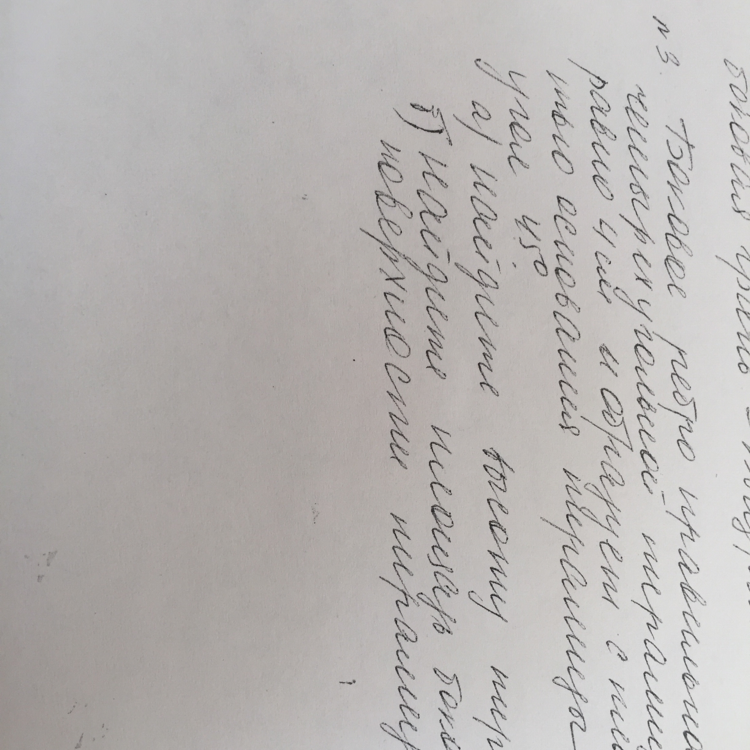 боковая грань
№3. Боковое ребро правильно
четырехугольной пирами
равно 4 см и образует с пл
тью основания пирамиды
угол 45°
а) найдите высоту пир
б) найдите площадь боко
поверхности пирамид